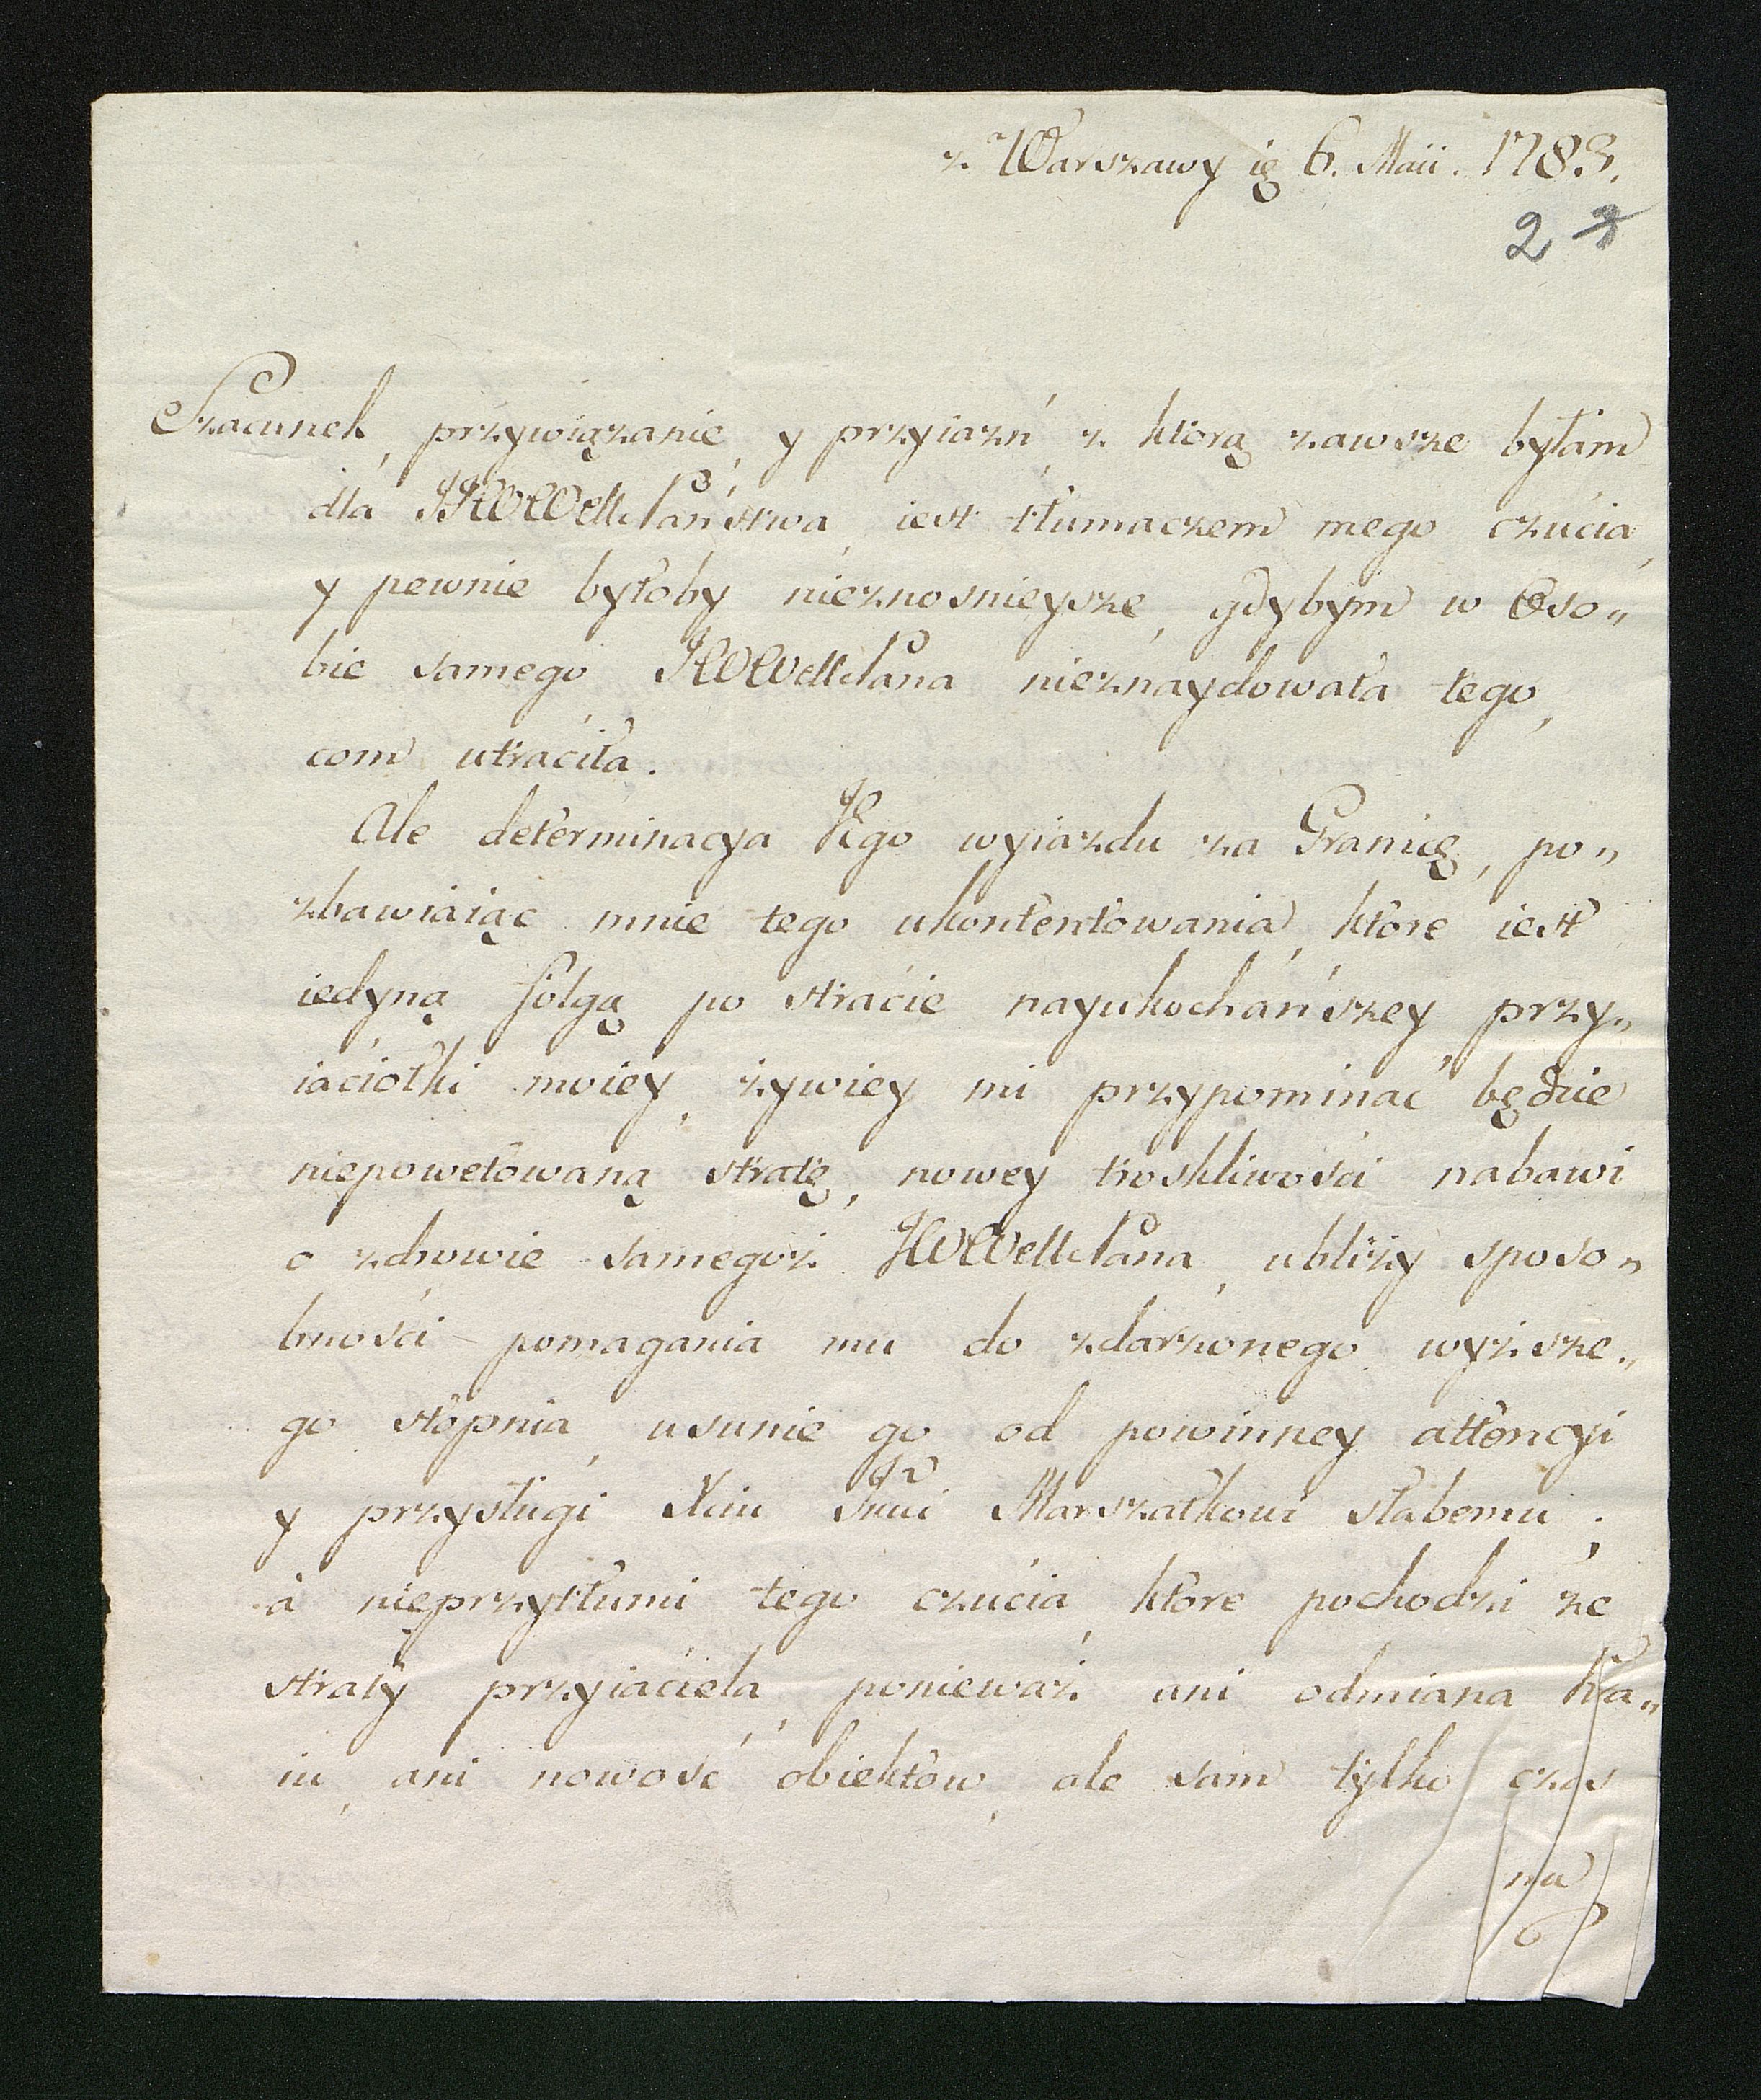 z. Warszawy ię 6. Maii. 1783.
2
Szacunek, przywiązanie, y przyiaźń, z. którą zawsze byłam
dla JJWWMM Państwa, iest tłumaczem mego czucia,
y pewnie byłoby nieznosnieysze, gdybym w Oso„
bie samego JWWMM Pana nieznaydowała tego,
com utraciła.
Ale determinacya Jego wyiazdu za Granicę, po„
zbawiaiąc mnie tego ukontentowania, które iest
iedyną folgą po stracie nayukochańszey przy„
iaciołki moiey, żywiey mi przypominać będzie
niepowetowaną stratę, nowey troskliwości nabawi
o zdrowie samegoż JWWMM Pana, ubliży sposo„
bności pomagania mu do zdarzonego wyższe„
go stopnia, usunie go od powinney attencyi
y przysługi Xciu Jmci Marszałkowi słabemu;
à nieprzytłumi tego czucia, które pochodzi ze
straty przyiaciela, ponieważ ani odmiana Kra„
iu, ani nowość obiektów, ale sam tylko czas
ma